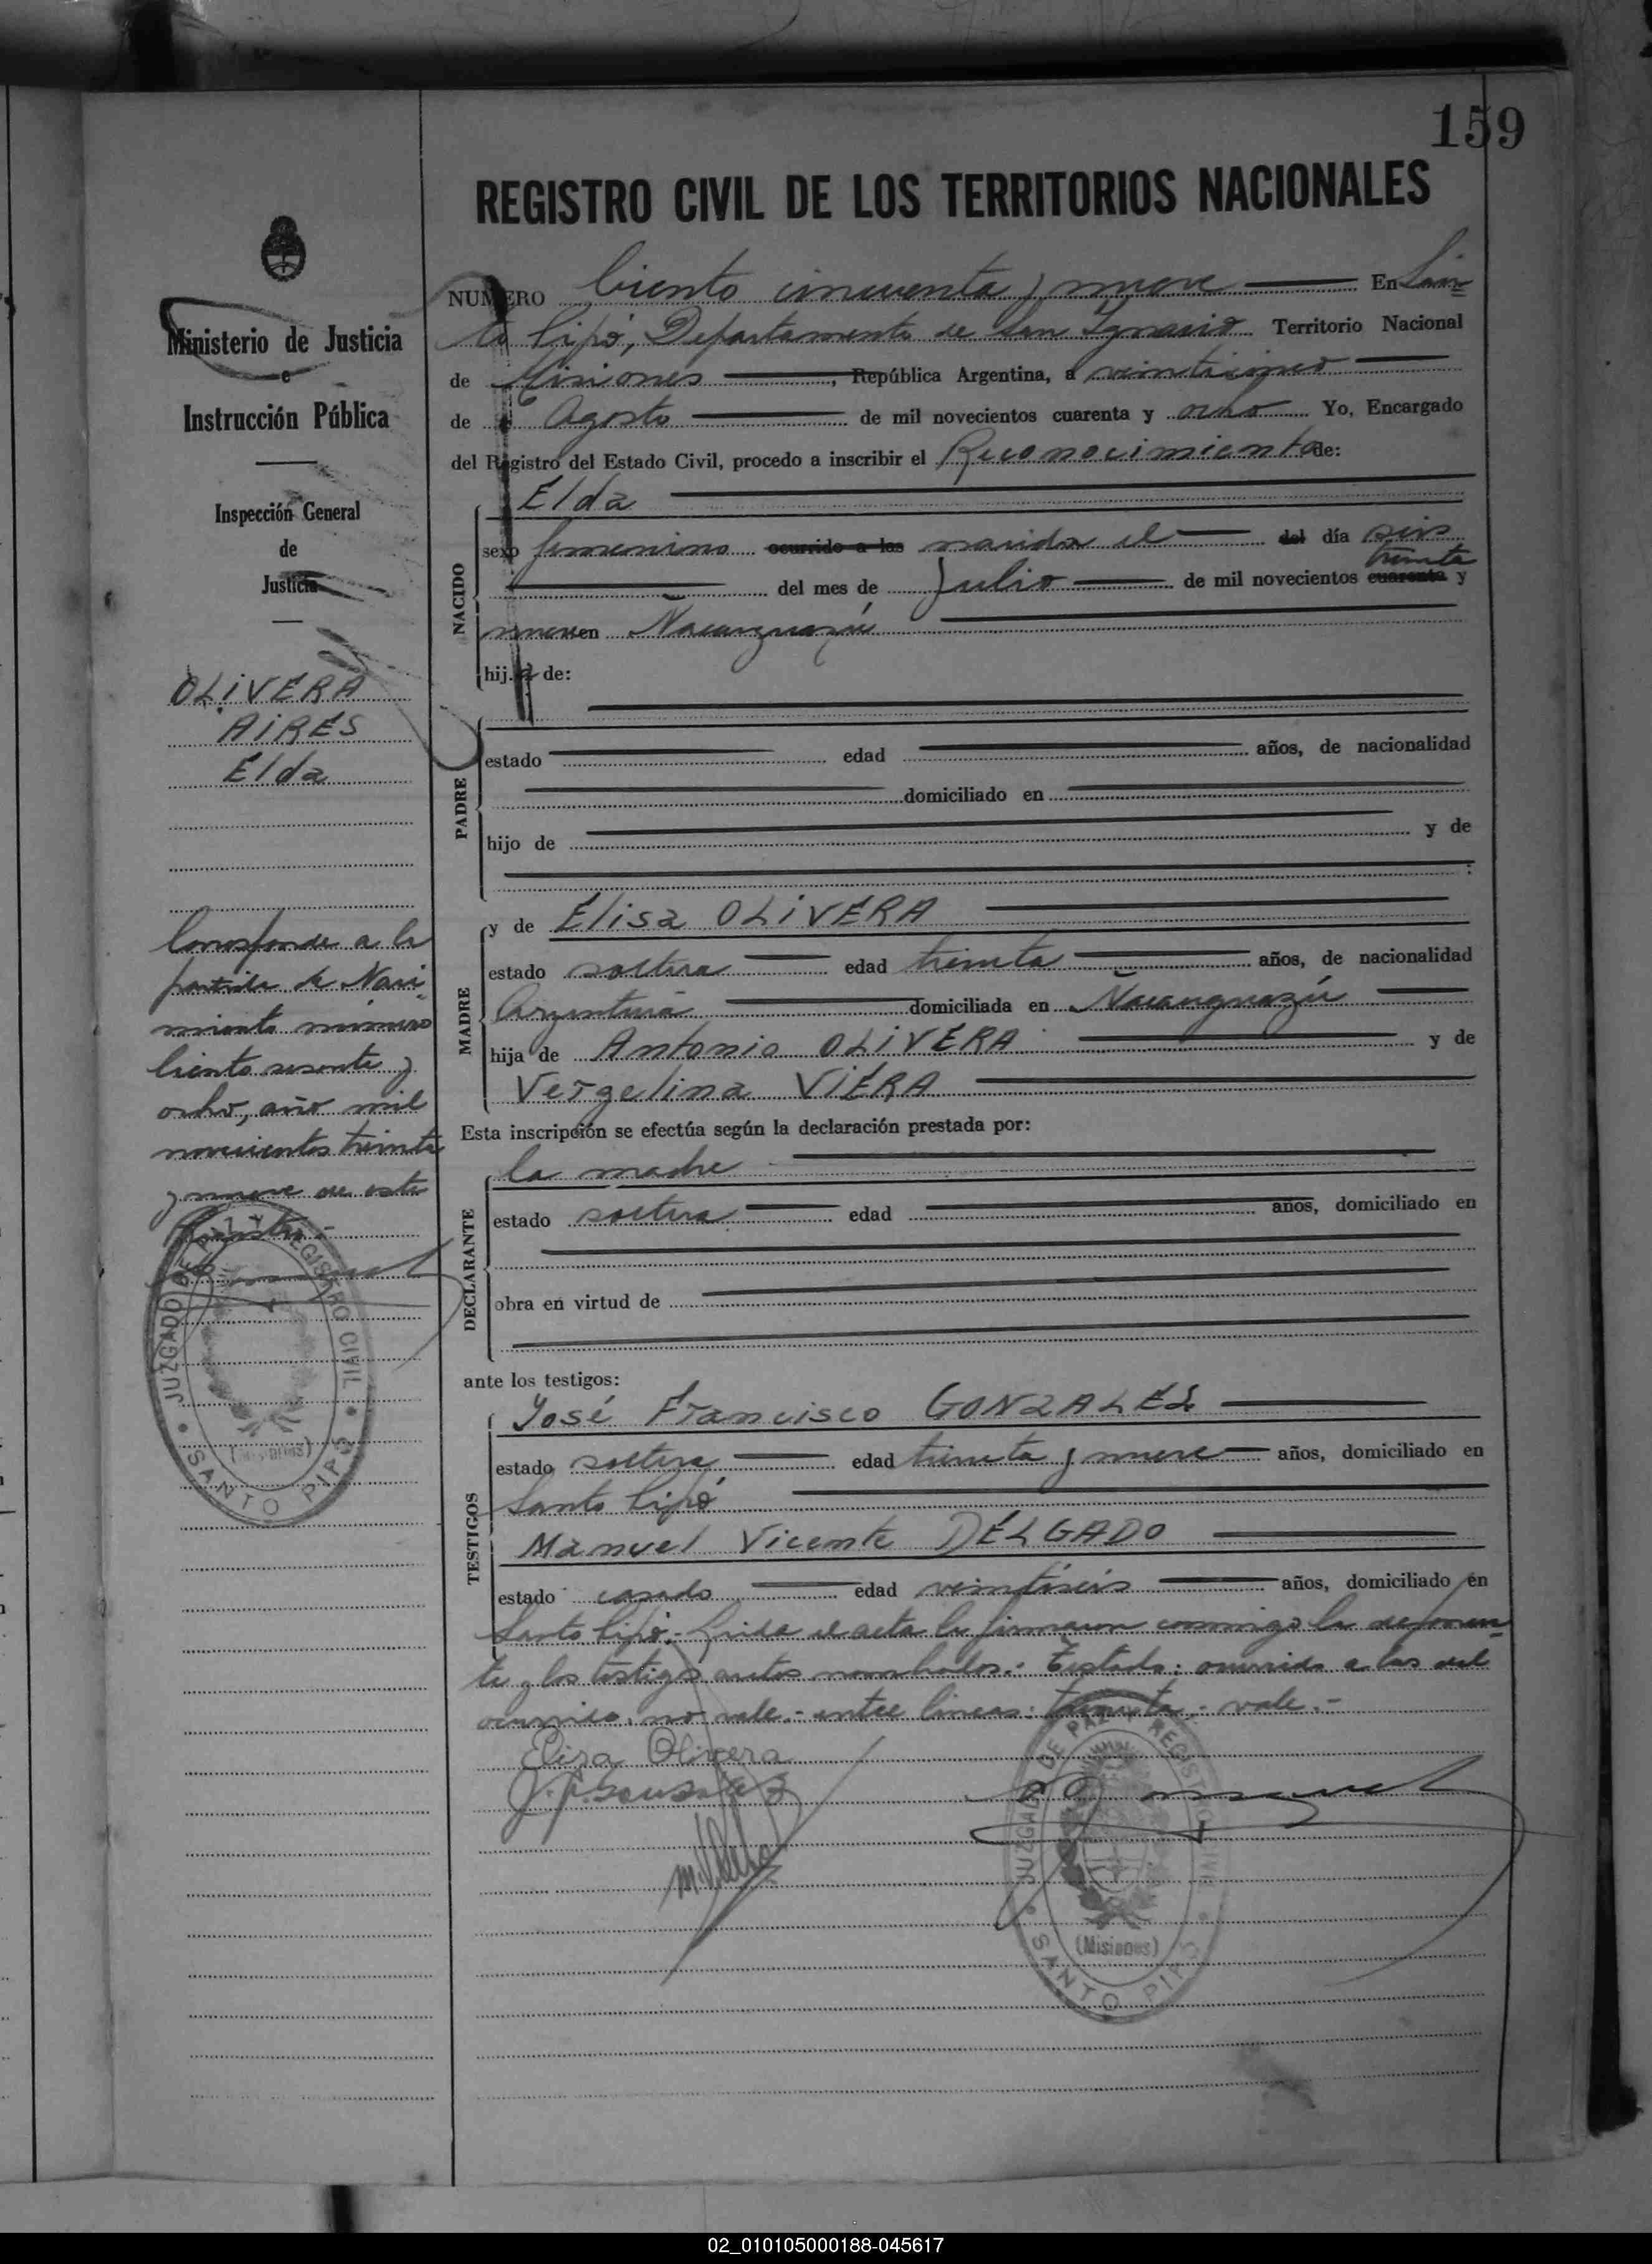 159
REGISTRO CIVIL DE LOS TERRITORIOS NACIONALES
Ministerio de Justicia
e
Instrucción Pública
Inspección General
de
Justicia
OLIVERA
AIRES
Elda
Corresponde a la
partida de Naci
miento número
Ciento sesenta y
ocho, año mil
novecientos treinta
y nueve de este
Registro.-
JUZGADO DE PAZ Y REGISTRO CIVIL
(Misiones)
SANTO PIPÓ
NUMERO Ciento cincuenta y nueve En San
to Pipó, Departamento de San Ignacio Territorio Nacional
de Misiones, República Argentina, a veinticinco
de Agosto de mil novecientos cuarenta y ocho Yo, Encargado
del Registro del Estado Civil, procedo a inscribir el Reconocimiento de:
NACIDO
Elda
sexo femenino ocurrido a las nacida el del día seis
treinta
del mes de Julio de mil novecientos cuarenta y
nueve en Ñacanguazú
hij a de:
PADRE
estado edad años, de nacionalidad
domiciliado en
hijo de y de
MADRE
y de Elisa OLIVERA
estado soltera edad treinta años, de nacionalidad
Argentina domiciliada en Ñacanguazú
hija de Antonio OLIVERA y de
Vergelina VIERA
Esta inscripción se efectúa según la declaración prestada por:
DECLARANTE
la madre
estado soltera edad años, domiciliado en
obra en virtud de
ante los testigos:
TESTIGOS
José Francisco GONZALEZ
estado soltero edad treinta y nueve años, domiciliado en
Santo Pipó
Manuel Vicente DELGADO
estado casado edad veintiséis años, domiciliado en
Santo Pipó.- Leída el acta la firmaron conmigo la deponen-
te y los testigos antes nombrados.- Testado: ocurrido a las del
no vale.- entre líneas: treinta: vale.-
Elisa Olivera
J.F. Gonzalez
JUZGADO DE PAZ Y REGISTRO CIVIL
(Misiones)
SANTO PIPÓ
02_010105000188-045617